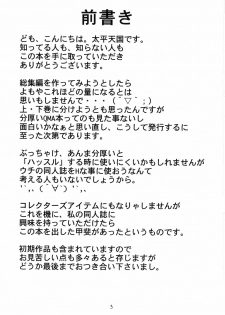 前書き
ども、こんにちは。太平天国です。
知ってる人も、知らない人も
この本を手に取っていただき
ありがとうございます。
総集編を作ってみようとしたら
よもやこれほどの量になるとは
思いもしませんで・・・(´▽｀;)
上・下巻に分けようとも思ったんですが
分厚いQMA本ってのも見た事ないし
面白いかなぁと思い直し、こうして発行するに
至った次第であります。
ぶっちゃけ、あんま分厚いと
「ハッスル」する時に使いにくいかもしれませんが
ウチの同人誌をH事に使おうなんて
考える人もいないでしょうから。
コレクターズアイテムにもなりゃしませんが
これを機に、私の同人誌に
興味を持っていただけたら
この本を出した甲斐があったというものです。
初期作品も含まれていますので
お見苦しい点も多々あると存じますが
どうか最後までおつき合い下さいませ。
5